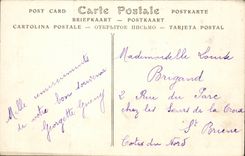 POST CARD Carte Postale POSTKARTE
BRIEFKAART POSTKAART
CARTOLINA POSTALE ОТКРЫТОЕ ПИСЬМО TARJETA POSTAL
Mademoiselle Louise
Brigand
2 Rue du Parc
chez les Sœurs de la Croix
St Brieuc
Cotes du Nord
Mille remerciements
de votre bon souvenir
Georgette